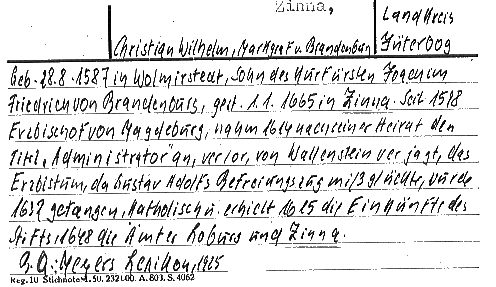 Zinna,
Landkreis
Christian Wilhelm, Markgraf v. Brandenburg
Jüterbog
Geb. 28.8.1587 in Wolmirstedt, Sohn des Kurfürsten Joachim
Friedrich von Brandenburg, gest. 1.1.1665 in Zinna. Seit 1598
Erzbischof von Magdeburg, nahm 1614 nach seiner Heirat den
Titel "Administrator" an, verlor, von Wallenstein verjagt, das
Erzbistum, da Gustav Adolfs Befreiungszug mißglückte, wurde
gefangen, Katholisch u. erhielt die Einkünfte des
Stifts 1648 die Ämter Loburg und Zinna.
Meyers Lexikon, 1925
Reg. 10 Stichnote 1.50. 232100. A. 803. S. 4062